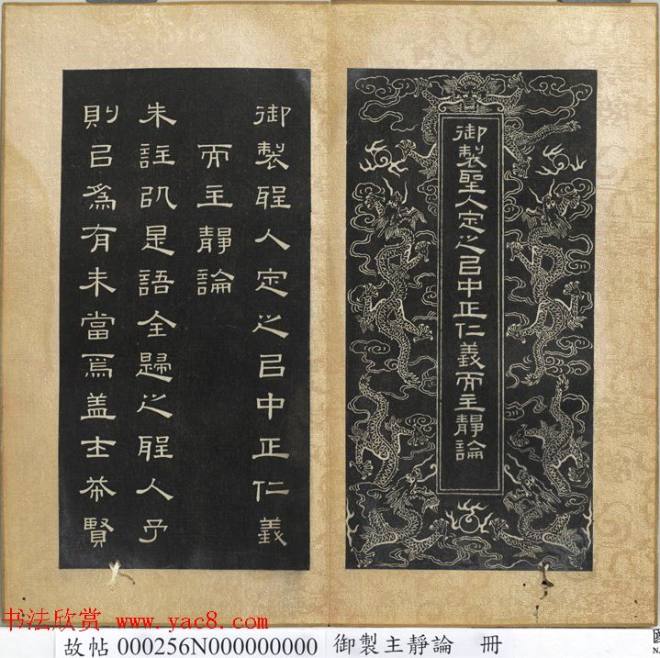 御製聖人定之㠯中正仁義而主靜論
御製聖人定之㠯中正仁義
而主靜論
朱註以是語全歸之聖人予
則㠯為有未當焉盖士希賢
书法欣赏 www.yac8.com
故帖 000256N000000000 御製主靜論 冊